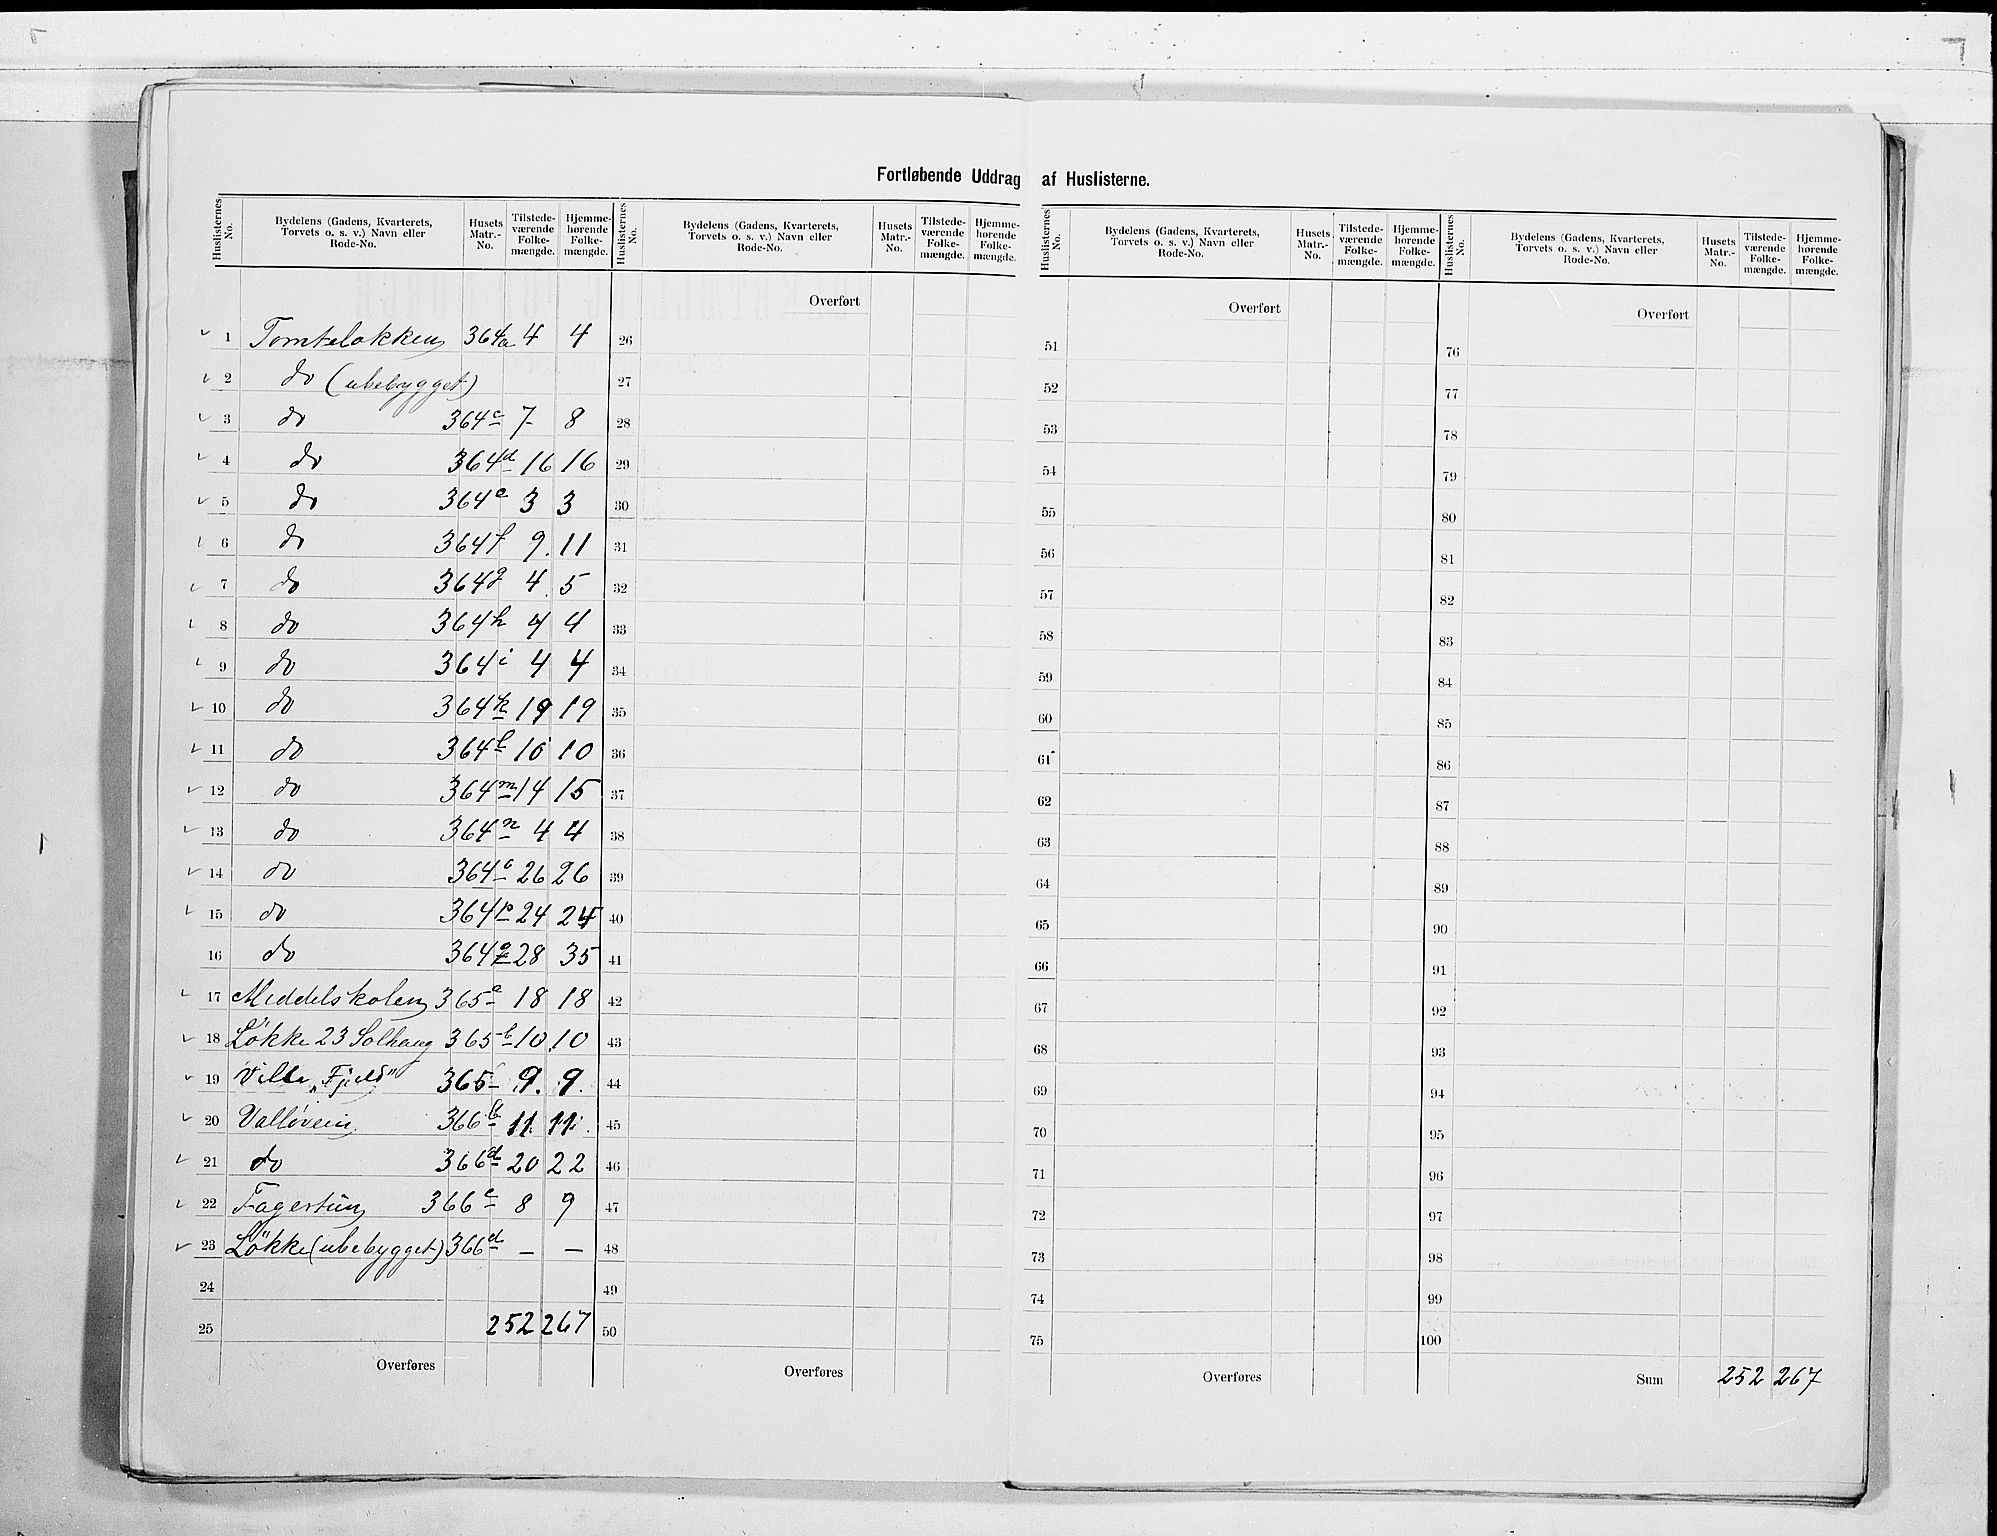 Fortløbende Uddrag af Huslisterne.
Huslisternes No. Bydelens (Gadens, Kvarterets, Torvets o. s. v.) Navn eller Rode-No. Husets Matr.-No. Tilstede-værende Folke-mængde. Hjemme-hørende Folke-mængde. Huslisternes No. Bydelens (Gadens, Kvarterets, Torvets o. s. v.) Navn eller Rode-No. Husets Matr.-No. Tilstede-værende Folke-mængde. Hjemme-hørende Folke-mængde. Huslisternes No. Bydelens (Gadens, Kvarterets, Torvets o. s. v.) Navn eller Rode-No. Husets Matr.-No. Tilstede-værende Folke-mængde. Hjemme-hørende Folke-mængde. Huslisternes No. Bydelens (Gadens, Kvarterets, Torvets o. s. v.) Navn eller Rode-No. Husets Matr.-No. Tilstede-værende Folke-mængde. Hjemme-hørende Folke-mængde.
Overført Overført Overført
1 Tomteløkken 364a 4 4 26 51 76
2 do (ubebygget) 27 52 77
3 do 364c 7 8 28 53 78
4 do 364d 16 16 29 54 79
5 do 364e 3 3 30 55 80
6 do 364f 9 11 31 56 81
7 do 364g 4 5 32 57 82
8 do 364h 4 4 33 58 83
9 do 364i 4 4 34 59 84
10 do 364k 19 19 35 60 85
11 do 364l 10 10 36 61 86
12 do 364m 14 15 37 62 87
13 do 364n 4 4 38 63 88
14 do 364o 26 26 39 64 89
15 do 364p 24 24 40 65 90
16 do 364q 28 35 41 66 91
17 Middelskolen 365a 18 18 42 67 92
18 Løkke 23 Solhaug 365b 10 10 43 68 93
19 Villa „Fjeld" 365 9. 9. 44 69 94
20 Valløvein 366b 11 11 45 70 95
21 do 366d 20 22 46 71 96
22 Fagertun 366c 8 9 47 72 97
23 Løkke (ubebygget) 366d – – 48 73 98
24 49 74 99
25 252 267 50 75 100
Overføres Overføres Overføres Sum 252 267